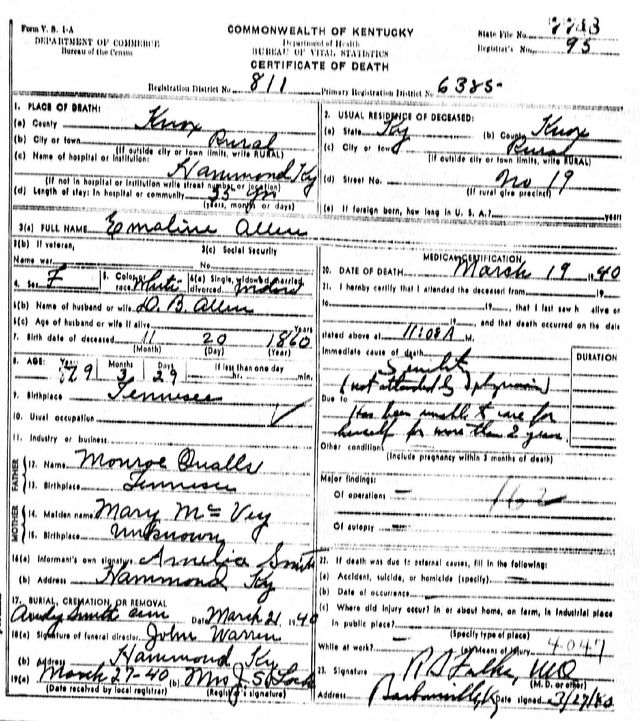 Form V. S. 1-A
DEPARTMENT OF COMMERCE
Bureau of the Census
COMMONWEALTH OF KENTUCKY
Department of Health
BUREAU OF VITAL STATISTICS
CERTIFICATE OF DEATH
State File No. 7743
Registrar's No. 95
Registration District No. 811 Primary Registration District No. 6385
1. PLACE OF DEATH:
(a) County Knox
(b) City or town Rural
(If outside city or town limits, write RURAL)
(c) Name of hospital or institution:
Hammond Ky
(If not in hospital or institution write street number or location)
(d) Length of stay: In hospital or community 35 yr
(years, months or days)
2. USUAL RESIDENCE OF DECEASED:
(a) State Ky (b) County Knox
(c) City or town Rural
(If outside city or town limits, write RURAL)
(d) Street No. No 19
(If rural give precinct)
(e) If foreign born, how long in U. S. A.? years
3(a) FULL NAME Emaline Allen
3(b) If veteran,
Name war
3(c) Social Security
No.
4. Sex F 5. Color or race White 6(a) Single, widowed, married, divorced Widow
6(b) Name of husband or wife D. B. Allen
6(c) Age of husband or wife if alive Years
7. Birth date of deceased 11 20 1860
(Month) (Day) (Year)
8. AGE: Years 79 Months 3 Days 29 If less than one day
hr. min.
9. Birthplace Tennessee
10. Usual occupation
11. Industry or business
FATHER
12. Name Monroe Qualls
13. Birthplace Tennessee
MOTHER
14. Maiden name Mary McVey
15. Birthplace Unknown
16(a) Informant's own signature Amelia Smith
(b) Address Hammond Ky
17. BURIAL, CREMATION, OR REMOVAL
Andy Smith Cem Date March 21, 1940
18(a) Signature of funeral director John Warren
(b) Address Hammond Ky
19(a) March 27-40 (b) Mrs J. S.
(Date received by local registrar) (Registrar's signature)
MEDICAL CERTIFICATION
20. DATE OF DEATH March 19, 1940
21. I hereby certify that I attended the deceased from 19
to 19, that I last saw h alive on
19, and that death occurred on the date
stated above at 11:08A M.
Immediate cause of death DURATION
Senility
(not attended by a physician)
Due to
Has been unable to care for
herself for more than 2 years.
Other conditions
(Include pregnancy within 3 months of death)
Major findings:
Of operations — 162
Of autopsy —
22. If death was due to external causes, fill in the following:
(a) Accident, suicide, or homicide (specify) —
(b) Date of occurrence —
(c) Where did injury occur? In or about home, on farm, in industrial place
in public place?
(Specify type of place)
While at work? (e) Means of Injury 4047
23. Signature MD
(M. D. or other)
Address Barbourville, Ky Date signed 3/27/40